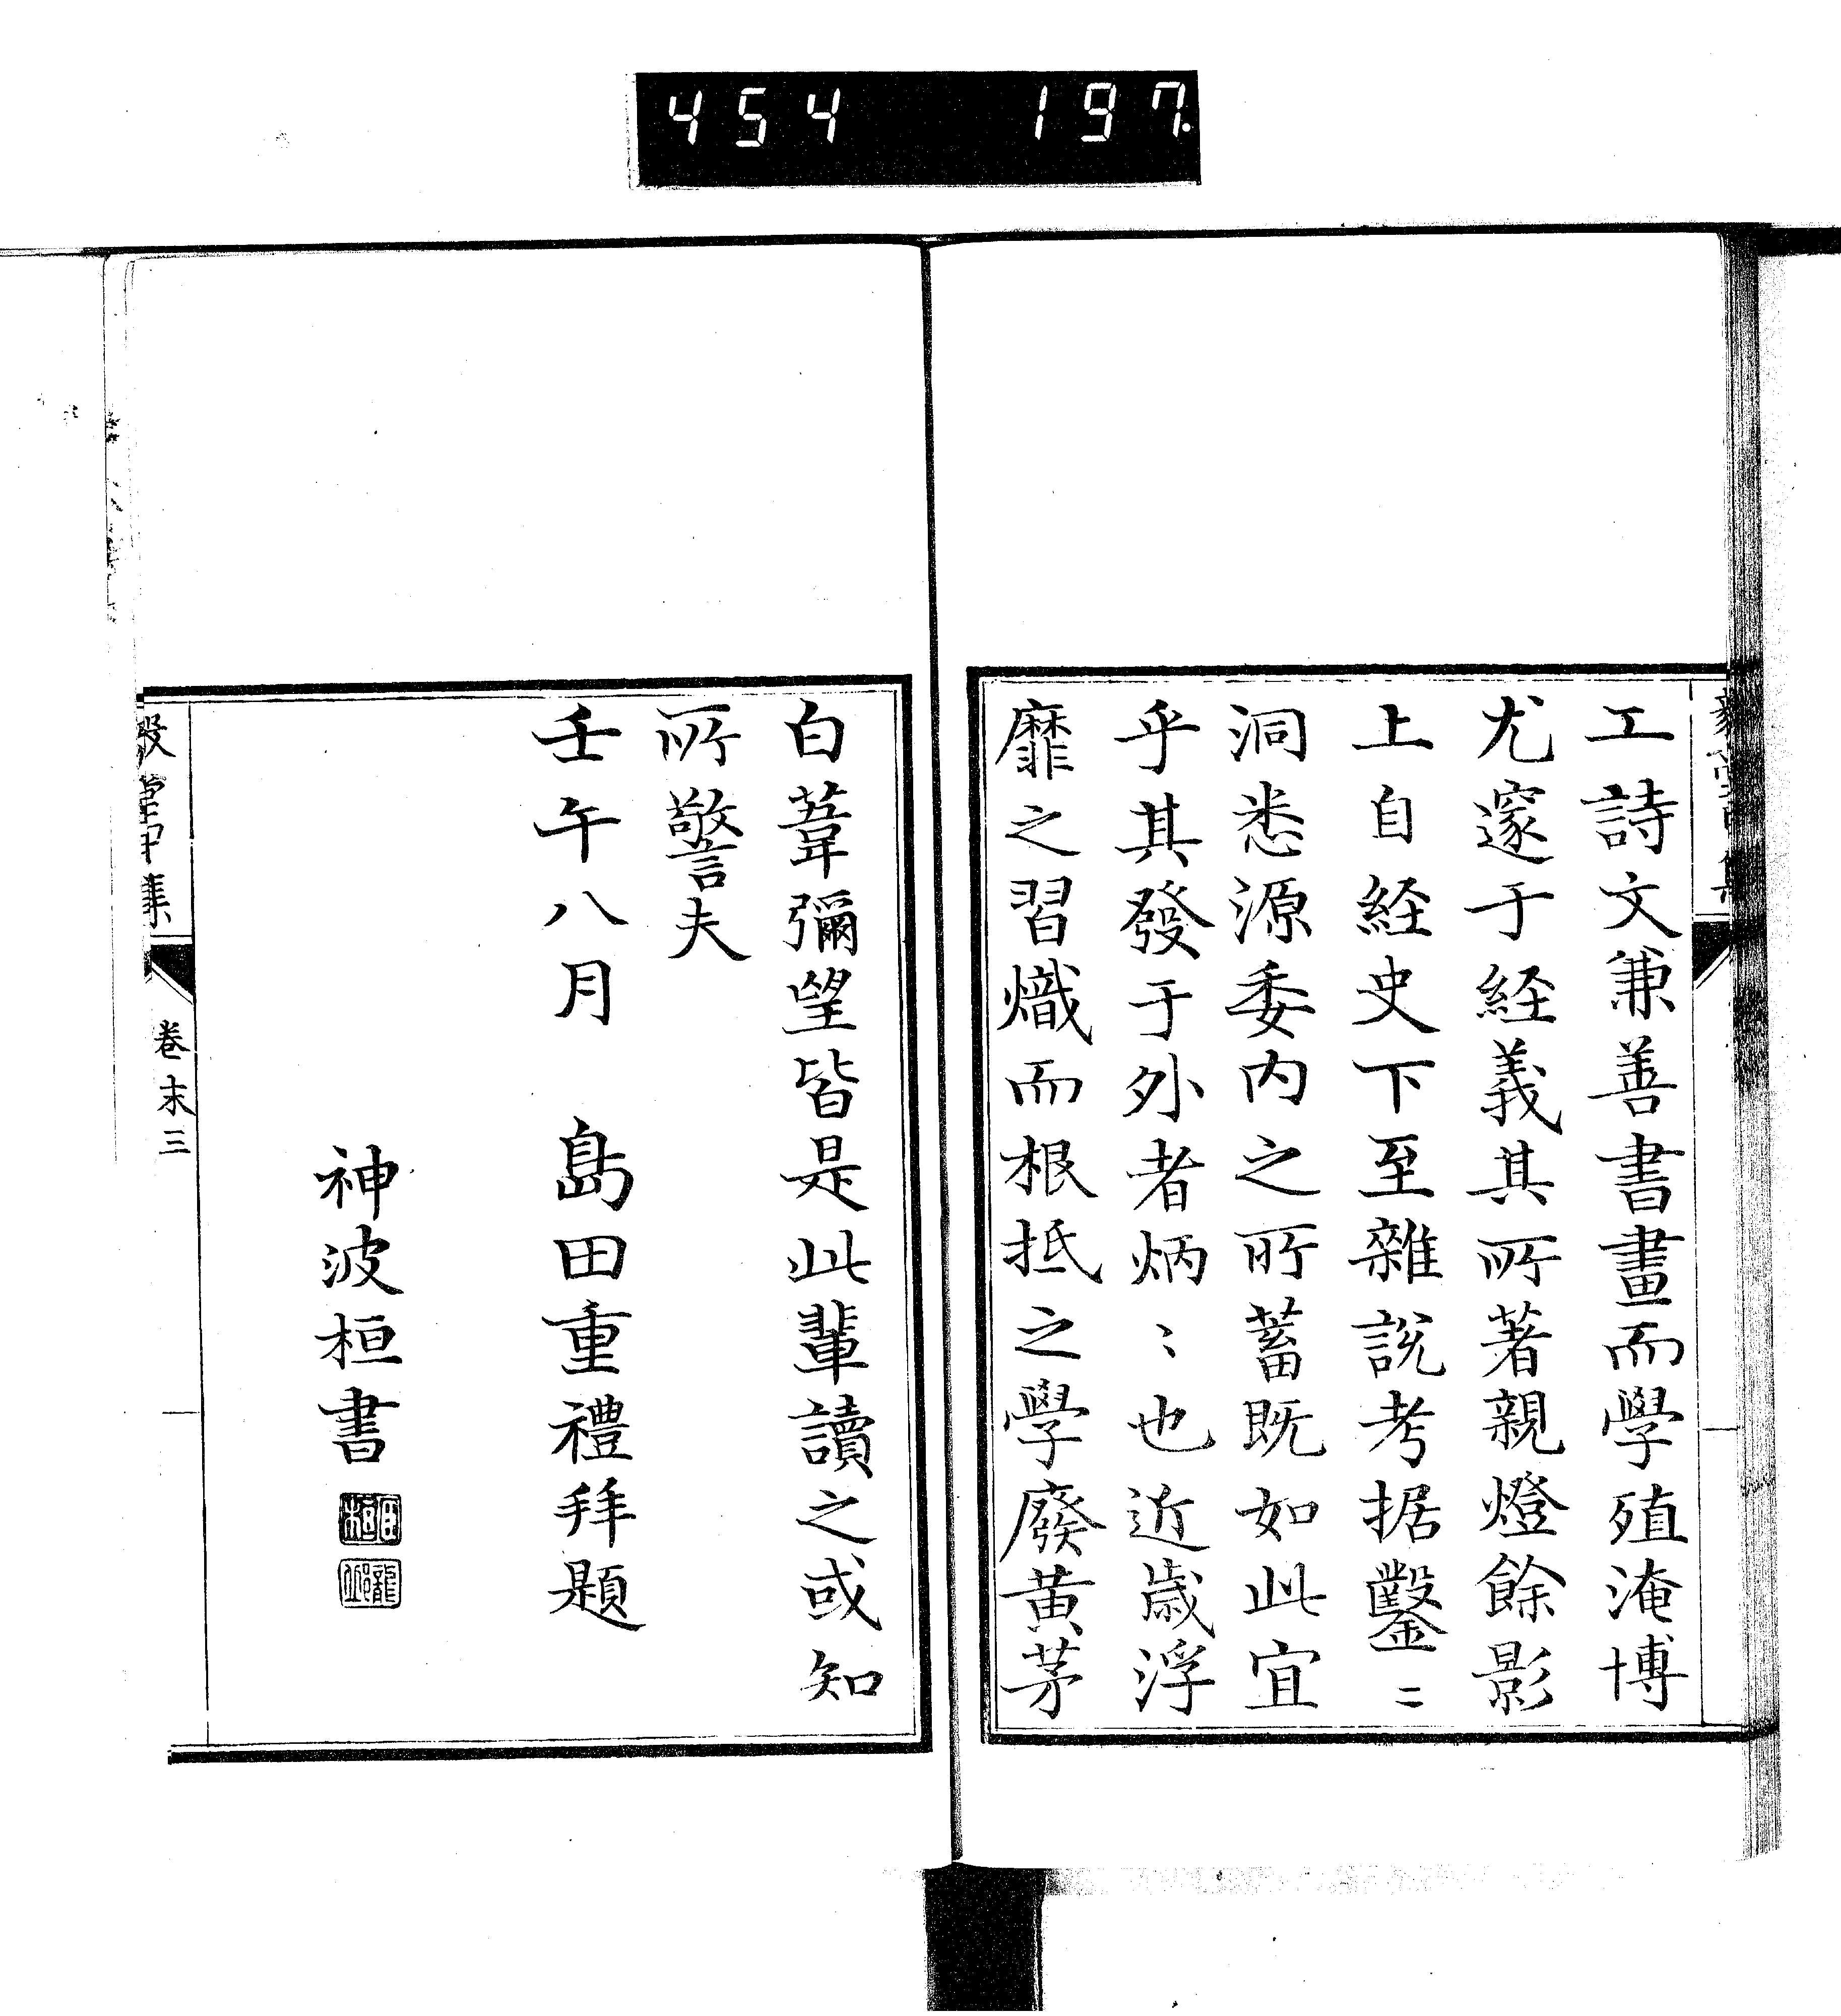 454 197.
工詩文兼善書畫而學殖淹博
尤邃于経義其所著親燈餘影
上自経史下至雜說考据鑿〻
洞悉源委内之所蓄既如此宜
乎其發于外者炳〻也近歲浮
靡之習熾而根抵之學廢黄茅
白葦彌望皆是此輩讀之或知
所警夫
壬午八月 島田重禮拜題
神波桓書
卷末三